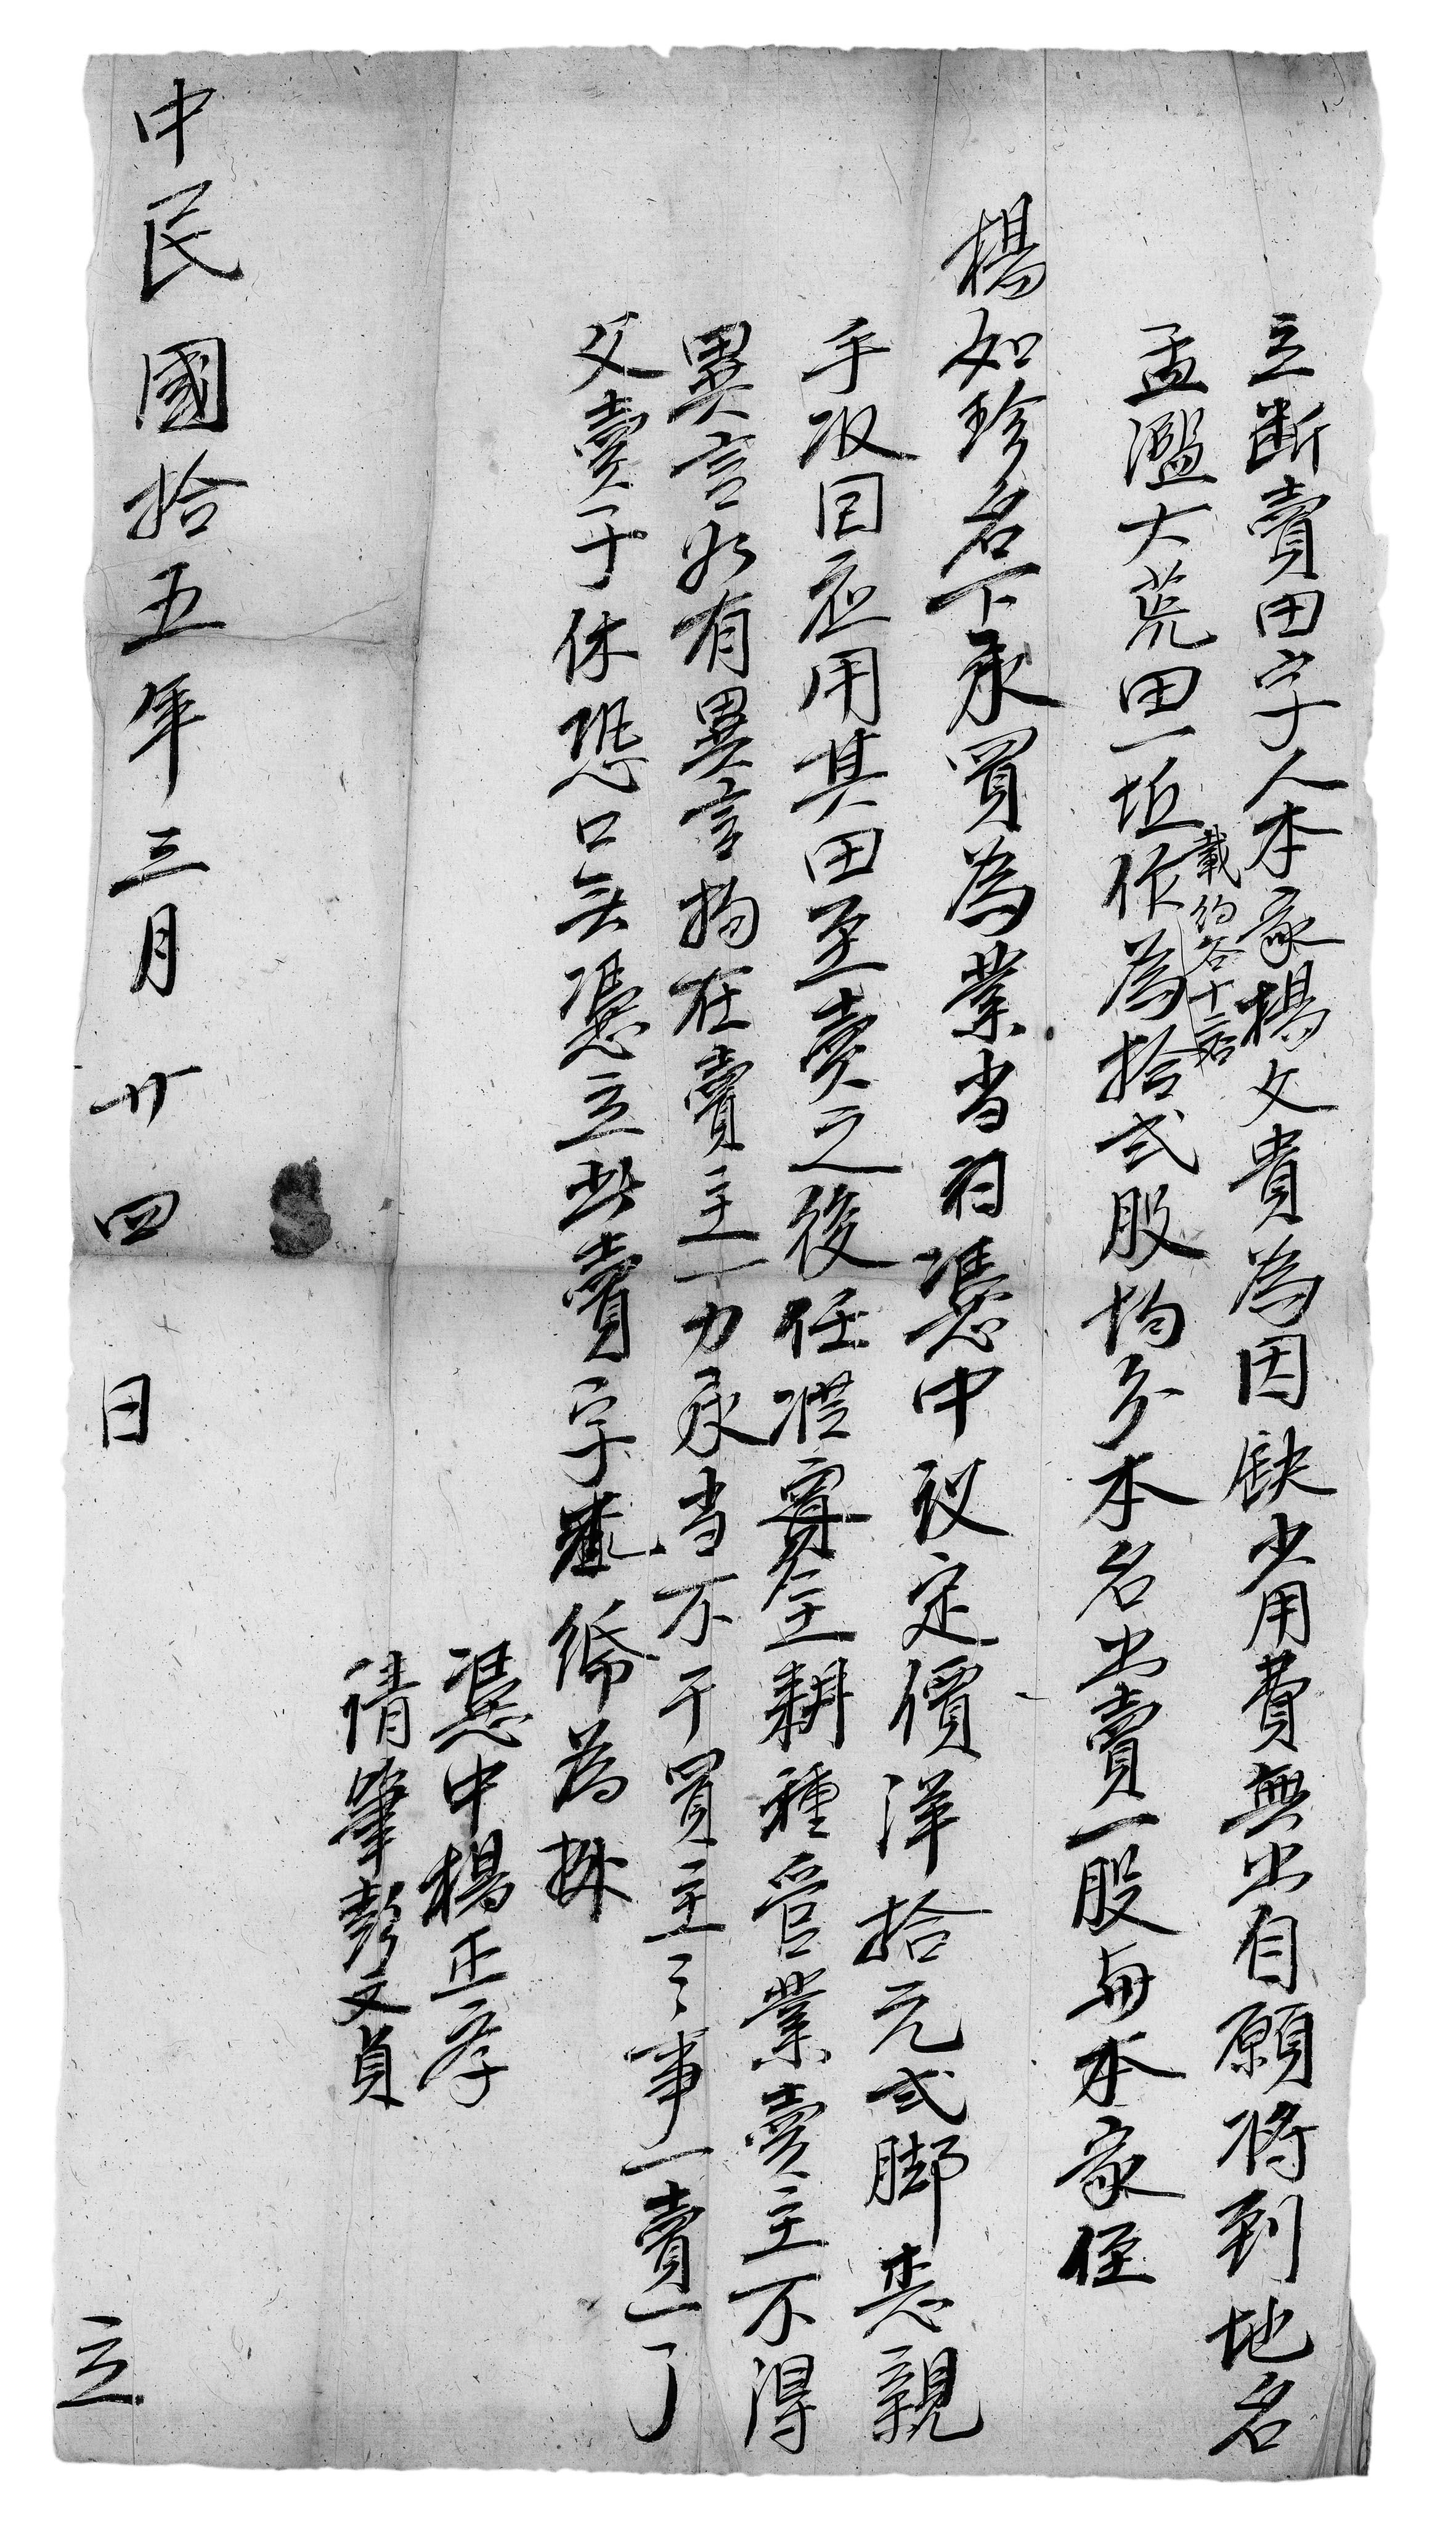 立断賣田字人本家楊文貴為因缺少用費無出自願将到地名
孟濫大荒田一坵作為拾弍股均分本名出賣一股與本家侄
載約谷十二石
楊如珍名下承買為業当日憑中议定價洋拾元弍脚恙親
手收回应用其田至賣之後任憑買主耕種管業賣主不得
異言如有異言拘在賣主一力承当不干買主之事一賣一了
父賣子休恐口无憑立此賣字壹紙為據
憑中楊正孝
请筆彭文貞
中民國拾五年三月廿四日 立